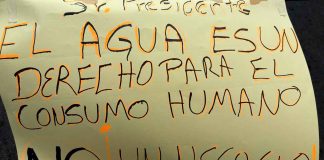 Sr. Presidente
EL AGUA ES UN
DERECHO PARA EL
CONSUMO HUMANO
NO! UN